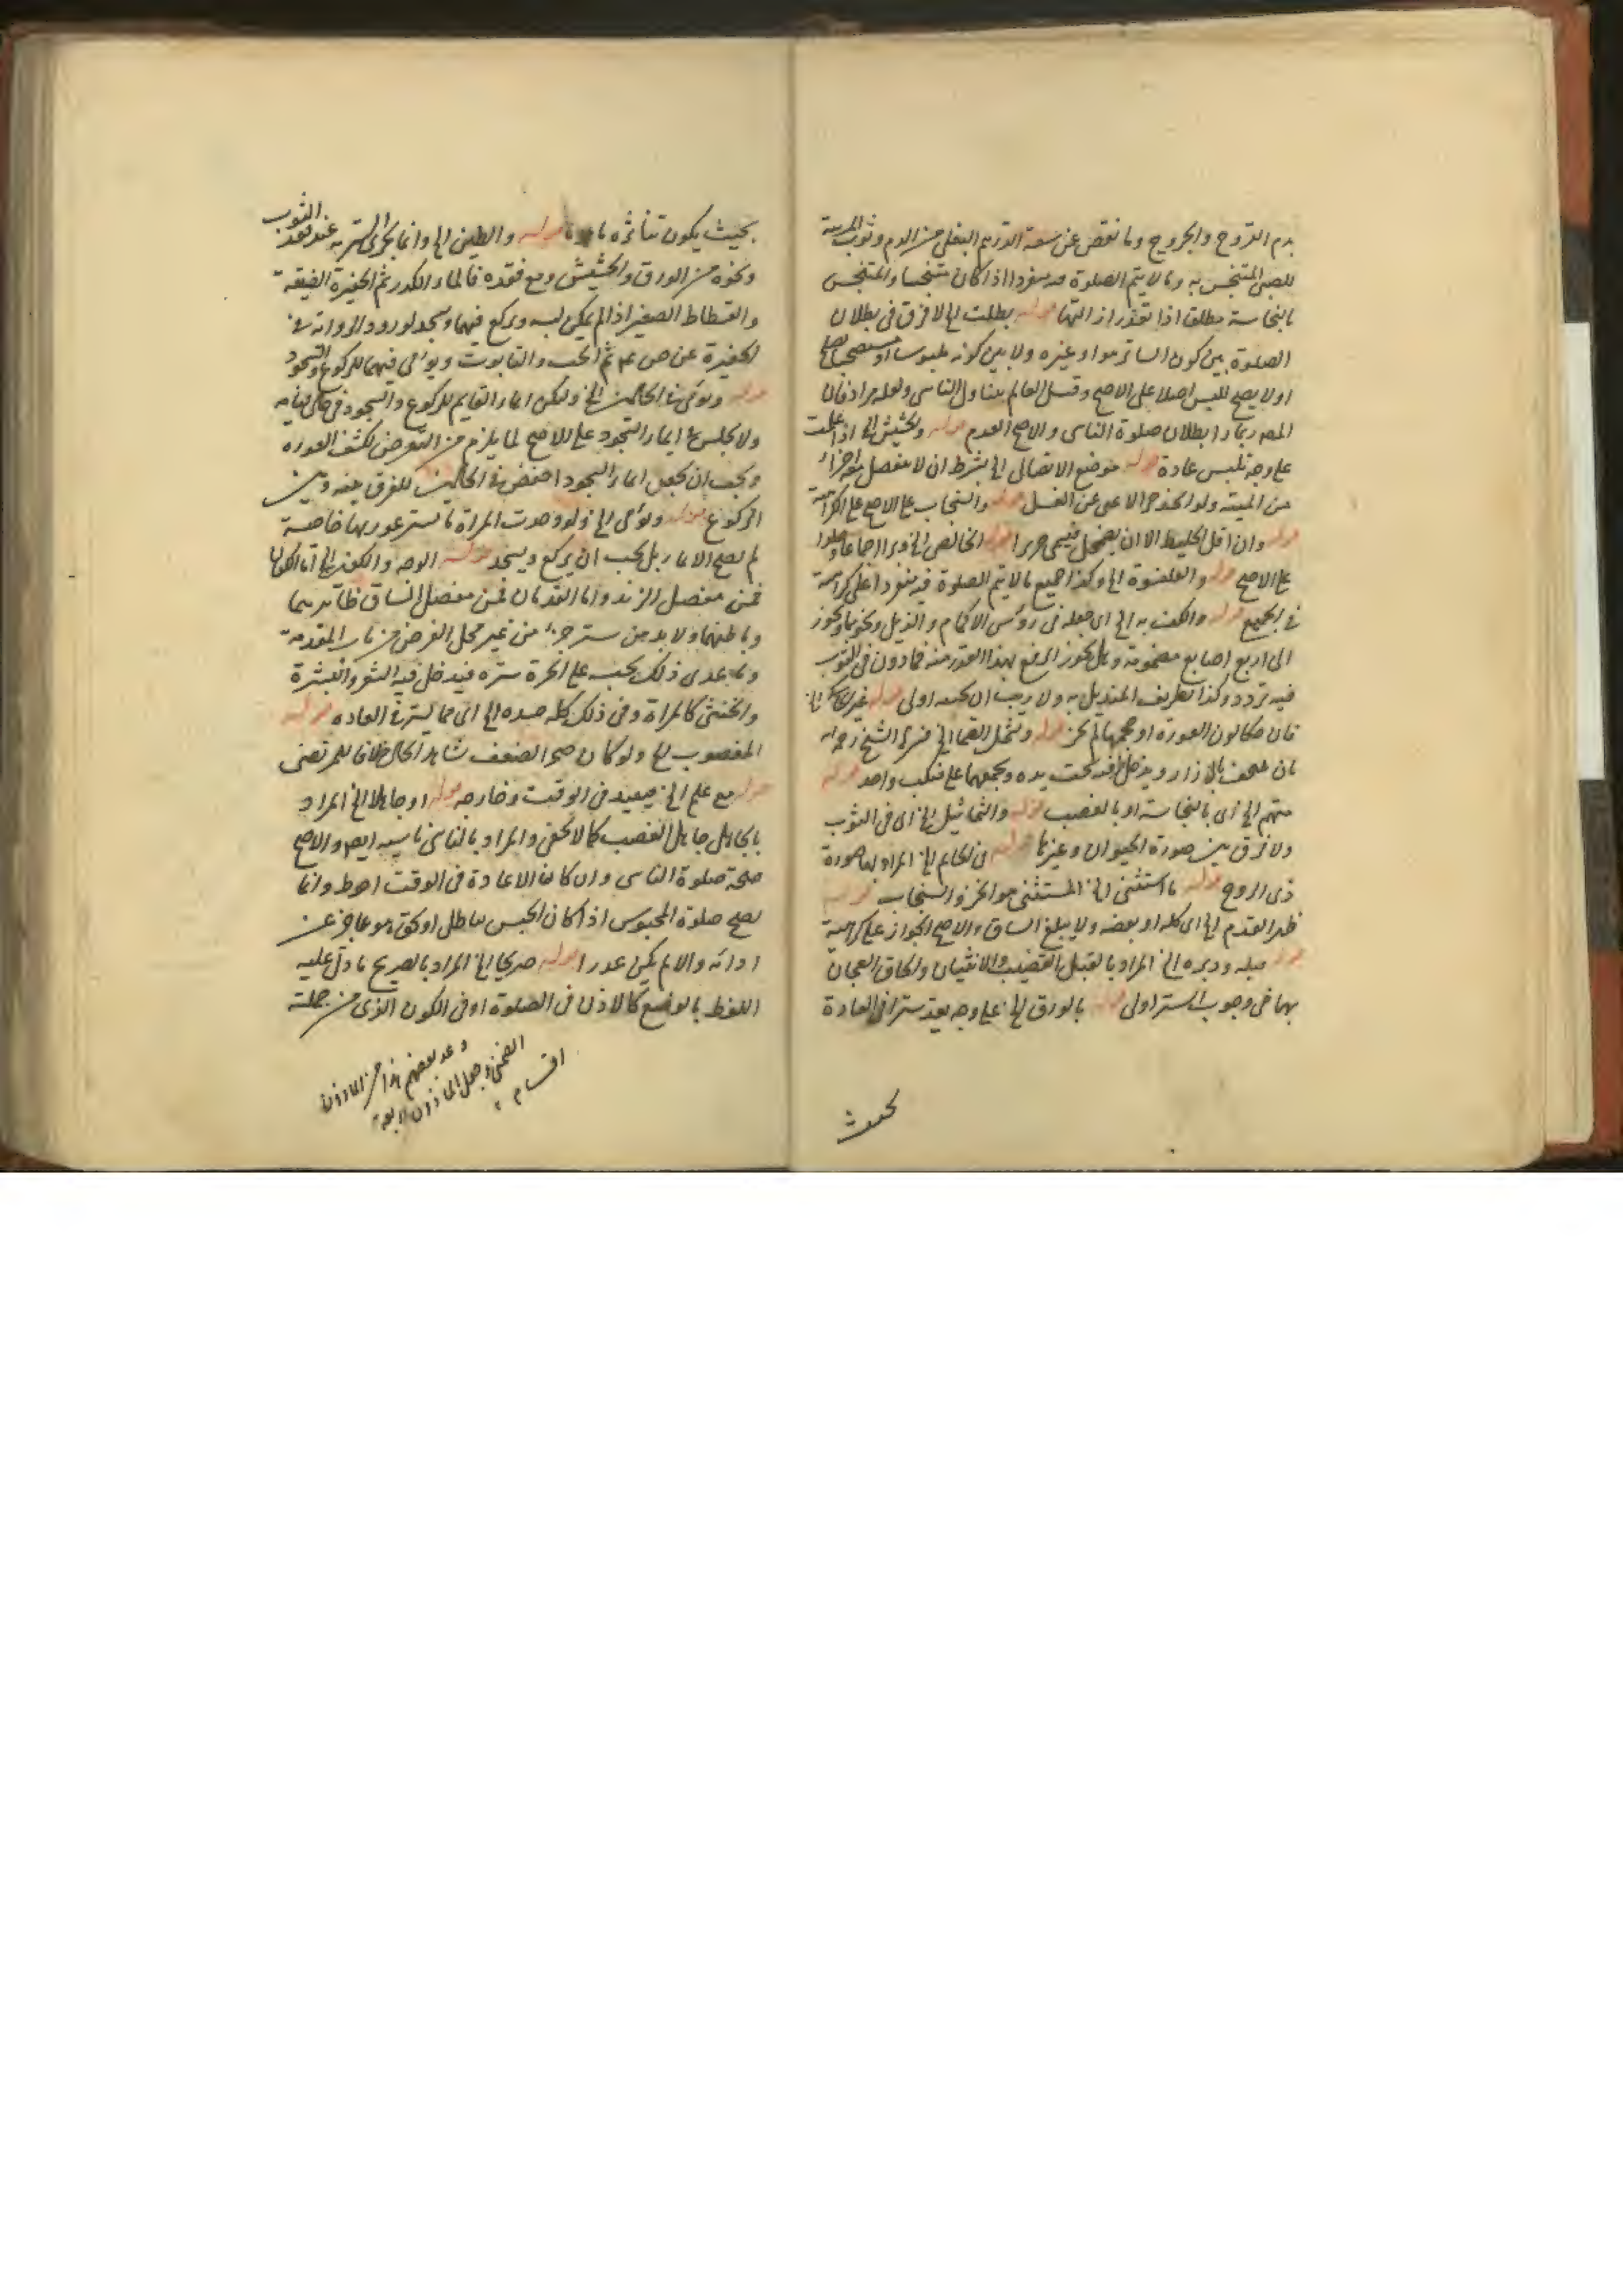 بدم القروح والجروح وما نقص عن سعة الدرهم البغلي من الدم وثوب المربية
للصبي المتنجس به وما لا يتم الصلوة فيه منفردا اذا كان متنجسا والمتنجس
بالنجاسة مطلقا اذا تعذر ازالتها قوله بطلت الخ لا فرق في بطلان
الصلوة بين كون الساتر هو او غيره ولا بين كونه ملبوسا او مستصحبا يصلح
او لا يصلح للبس اصلا على الاصح وقيل العالم يتناول الناسي ولعله مراد فان
المص ربما را ابطلان صلوة الناسي والاصح العدم قوله والحشيش الخ اذا عملت
على وجه تلبس عادة قوله موضع الاتصال الخ بشرط ان لا ينفصل اجزاء
من الميتة ولو اخذ جزا لاغنى عن الغسل قوله والسنجاب على الاصح على الكراهية
قوله وان اقل الخليط الا ان يضمحل فيسمى حريرا قوله الخالص الخ
على الاصح قوله والقلنسوة الخ وكذا جميع ما لا يتم الصلوة فيه منفردا على كراهية
في الجميع قوله والكف به الخ اي جعله في رؤس الاكمام والذيل ونحوها ويجوز
الى اربع اصابع مضمومة وهل يجوز الرفع بهذا القدر منه فما دون في الثوب
فيه تردد وكذا تطريف المنديل به ولا ريب ان تجنبه اولى قوله غير حاك الخ
فان حكا لون العورة او حجمها لم يجز قوله وتشمل الصما الخ فسره الشيخ رحمه الله
بان يلتحف بالازار ويدخل طرفيه تحت يده ويجمعهما على منكب واحد قوله
متهم الخ اي بالنجاسة او بالغصب قوله والتماثيل الخ اي في الثوب
ولا فرق بين صورة الحيوان وغيرها قوله في الخاتم الخ المراد بها صورة
ذي الروح قوله ما استثنى الخ المستثنى هو الخز والسنجاب قوله
ظهر القدم الخ اي كله او بعضه ولا يبلغ الساق والاصح الجواز على كراهية
قوله قبله ودبره الخ المراد بالقبل القضيب والانثيان والحاق العجان
بهما في وجوب الستر اولى قوله بالورق الخ على وجه يعد سترا في العادة
بحيث
بحيث يكون تناثره قوله والطين الخ وانما يجزى الستر به عند تعذر الثوب
ونحوه من الورق والحشيش ومع فقده فالماء الكدر ثم الحفيرة الضيقة
والفسطاط الصغير اذا لم يمكن لبسه ويركع فيهما ويسجد لورود الرواية في
الحفيرة عن ص عم ثم الحب والتابوت ويومى فيهما للركوع والسجود
قوله ويومى في الحالين الخ ولكن ايماء القايم للركوع والسجود في حال قيامه
ولا يجلس في ايماء السجود على الاصح لما يلزم من التعرض لكشف العورة
ويجب ان يجعل ايماء السجود اخفض في الحالين للفرق بينه وبين
الركوع قوله ويومى الخ فلو وجدت المراة ما يستر عورتها خاصة
لم يصح الايماء بل يجب ان يركع ويسجد قوله الوجه والكفين الخ اما الكفان
فمن مفصل الزند واما القدمان فمن مفصل الساق ظاهرهما
وباطنهما ولا بد من ستر جزء من غير محل الفرض من باب المقدمة
وما عدى ذلك يجب على الحرة ستره فيدخل فيه الشعر والبشرة
والخنثى كالمراة وفي ذلك كله جسده الخ اي مما يستر في العادة قوله
المغصوب الخ ولو كان صحرا لضعف شاهد الحال خلافا للمرتضى
قوله مع علم الخ فيعيد في الوقت وخارجه قوله او جاهلا الخ المراد
بالجاهل جاهل الغصب كما لا يخفى والمراد بالناسي ناسيه ايضا والاصح
صحة صلوة الناسي وان كان الاعادة في الوقت احوط وانما
يصح صلوة المحبوس اذا كان الحبس بباطل او بحق هو عاجز عن
ادائه والا لم يكن عذرا قوله صريحا الخ المراد بالصريح ما دل عليه
اللفظ بالوضع كالاذن في الصلوة او في الكون الذي من جملته
وعد بعضهم هذا من الماذون
الضمني وجعل الماذون اربعة
اقسام